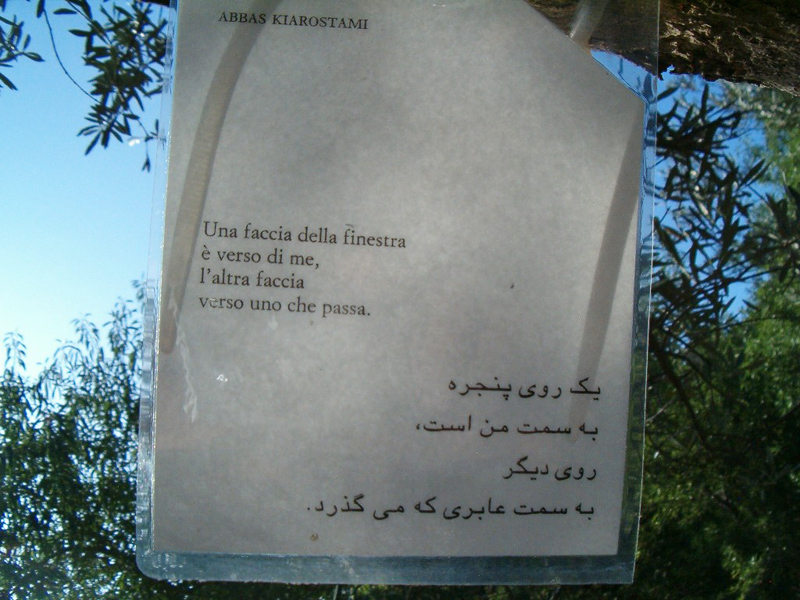 ABBAS KIAROSTAMI
Una faccia della finestra
è verso di me,
l'altra faccia
verso uno che passa.
یک روی پنجره
به سمت من است،
روی دیگر
به سمت عابری که می گذرد.